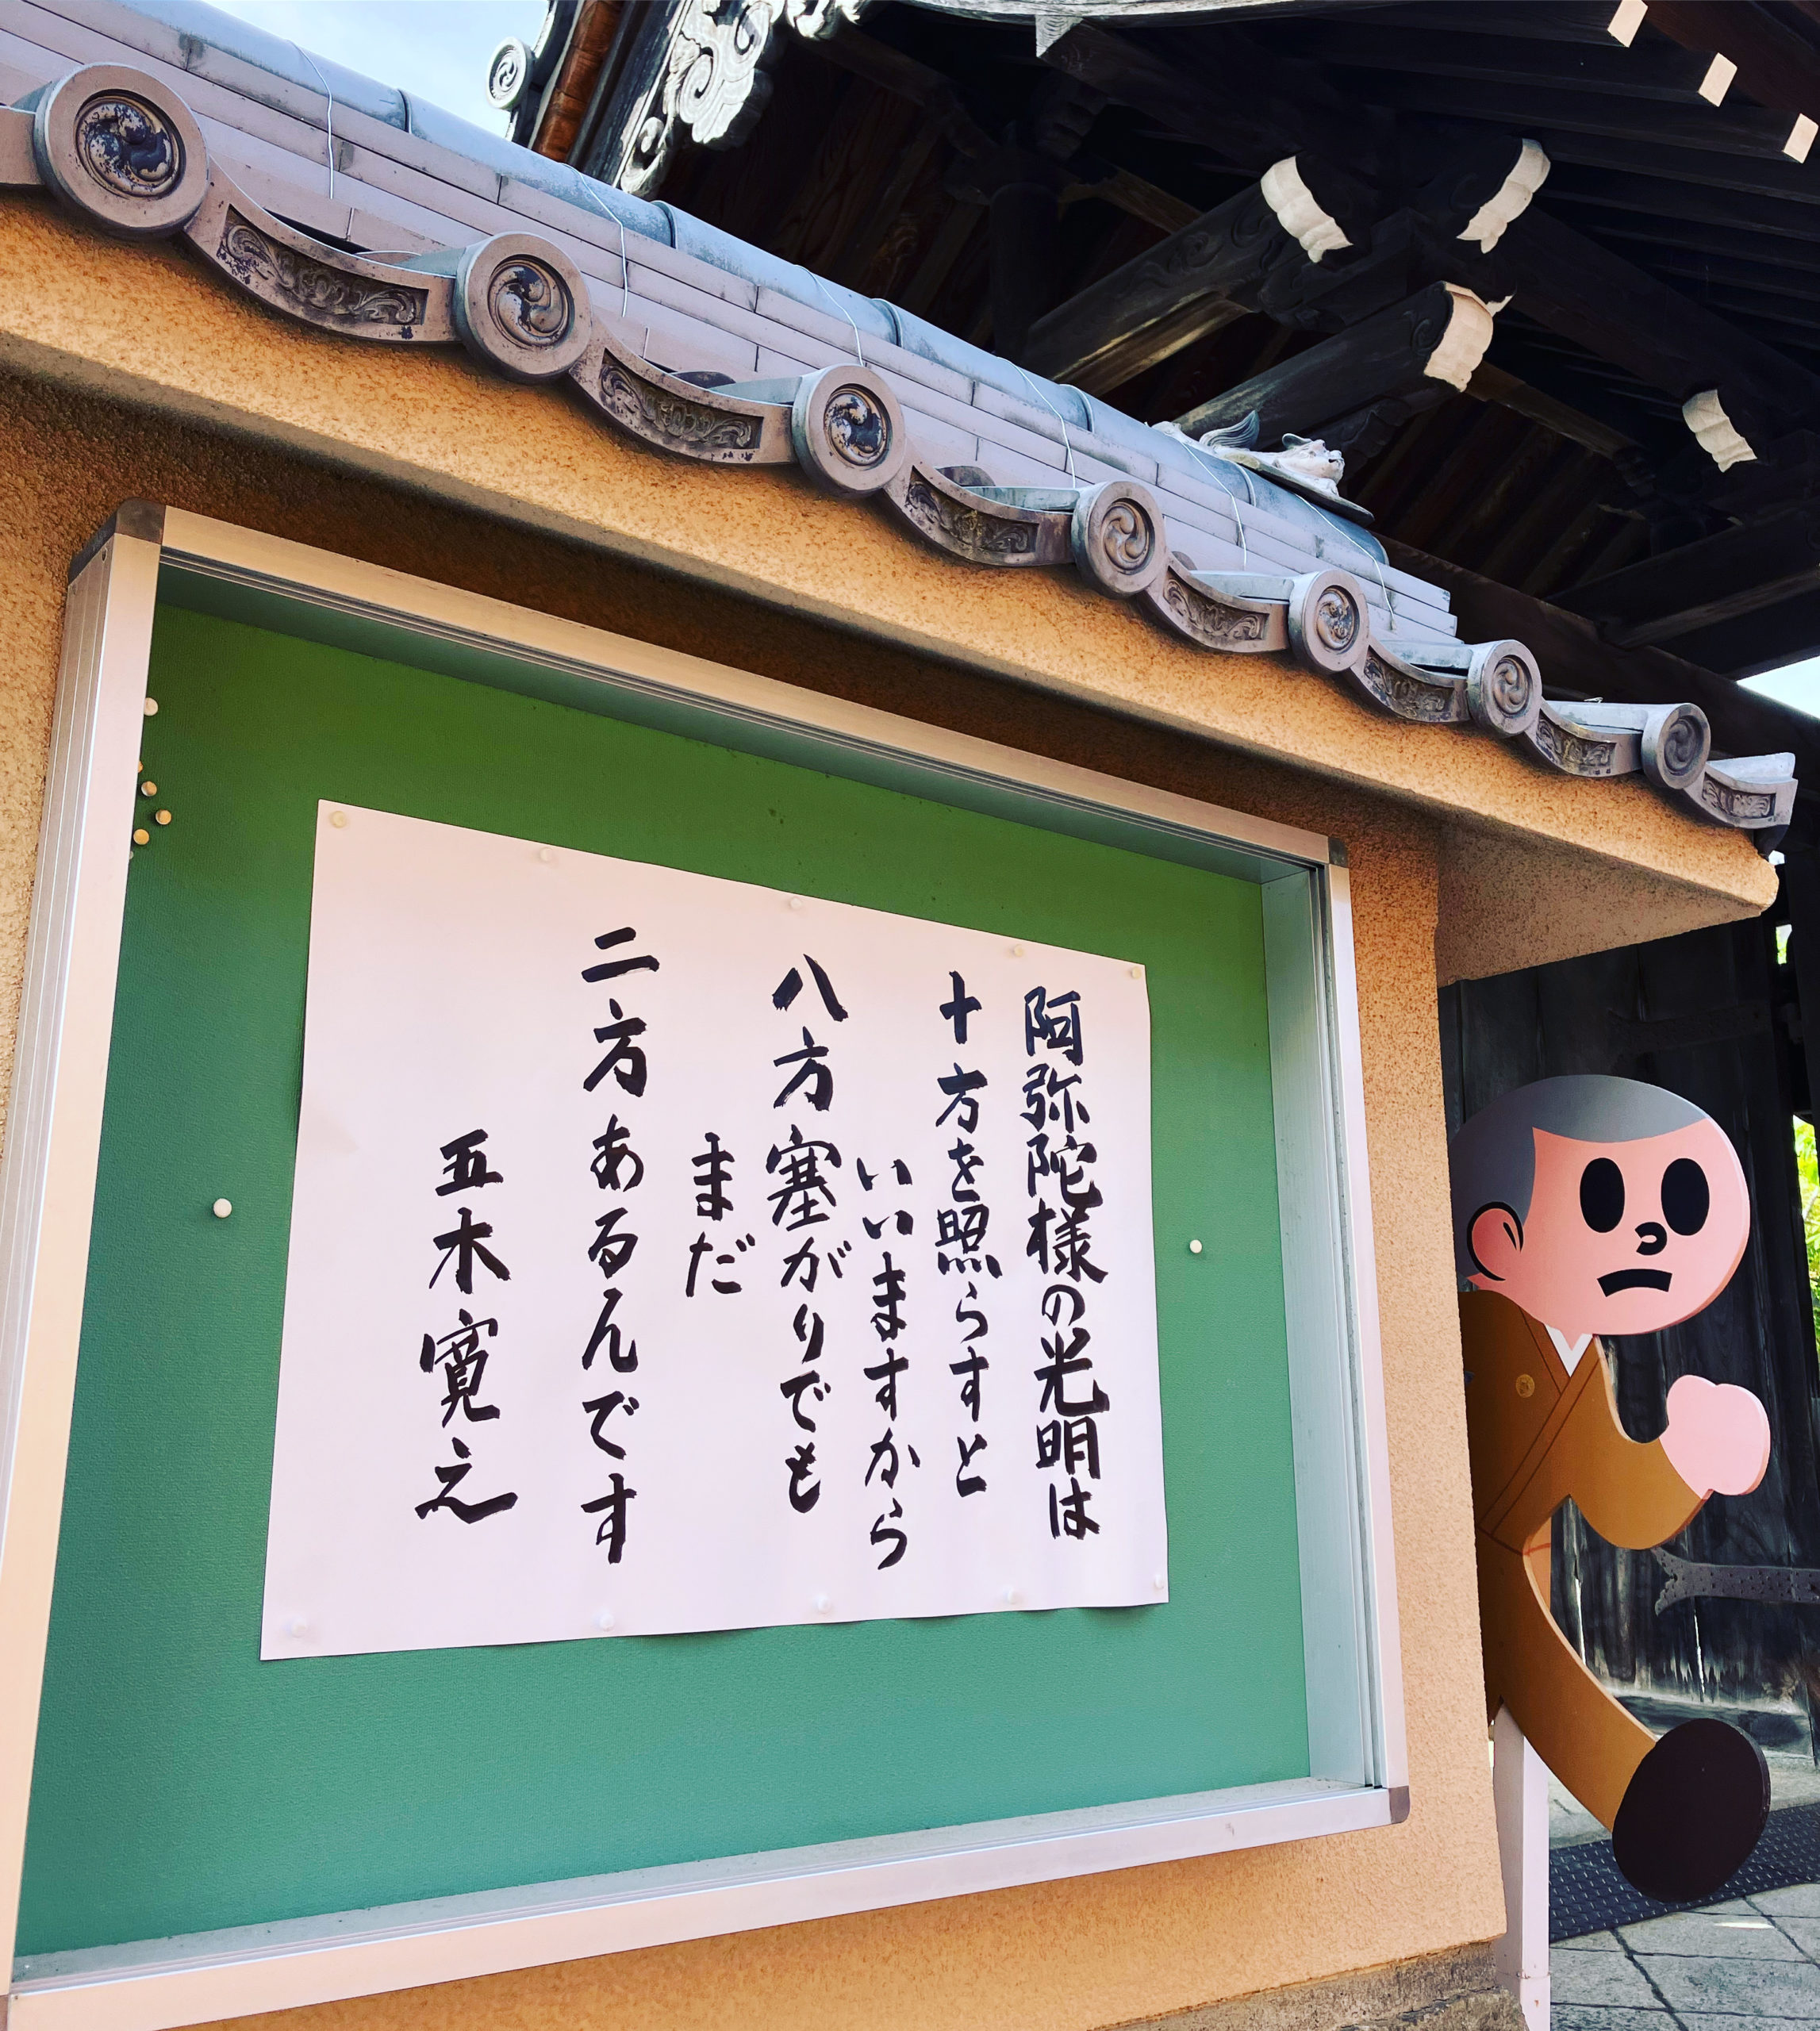 阿弥陀様の光明は
十方を照らすと
いいますから
八方塞がりでも
まだ
二方あるんです
五木寛之